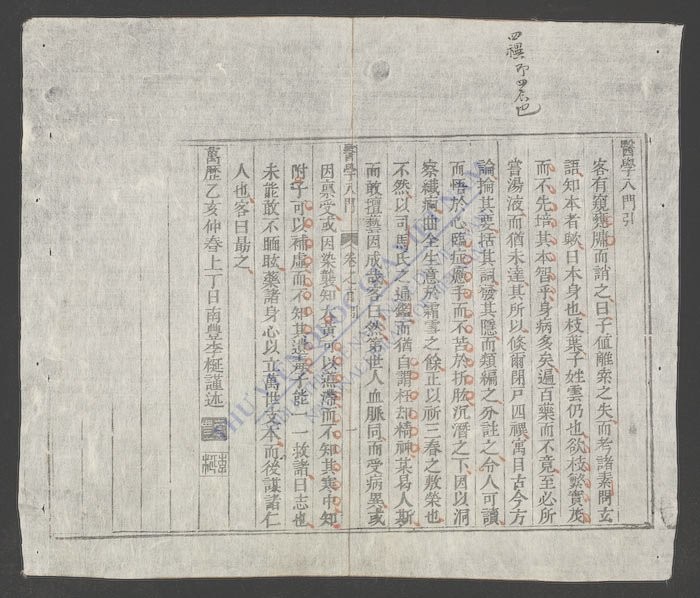 四禩即四居也
醫學入門引
客有窺蘧牖而誚之曰子值離索之失而考諸素問玄
語知本者歟曰本身也枝葉子姓雲仍也欲枝繁實茂
而不先培其本智乎身病多矣過百藥而不竟至必所
嘗湯液而猶未達其所以倏爾閉戶四禩寓目古今方
論掄其要括其詞發其隱而類編之分註之令人可讀
而悟於心臨症應手而不苦於折肱沉潛之下因以洞
察纖痾曲全生意於霜雪之餘正以祈三春之敷榮也
不然以司馬氏之通鑑而猶自謂枉却精神某易人斯
而敢擅藝因成哉客曰然第世人血脈同而受病異或
醫學入門 卷之首
一
因稟受或因染襲知大黃可以導滯而不知其寒中知
附子可以補虛而不知其遺毒子能一一救諸曰志也
未能敢不瞑眩藥諸身心以立萬世之本而後謀諸仁
人也客曰勗之
萬歷乙亥仲春上丁日南豐李梴謹述
THƯ VIỆN QUỐC GIA VIỆT NAM